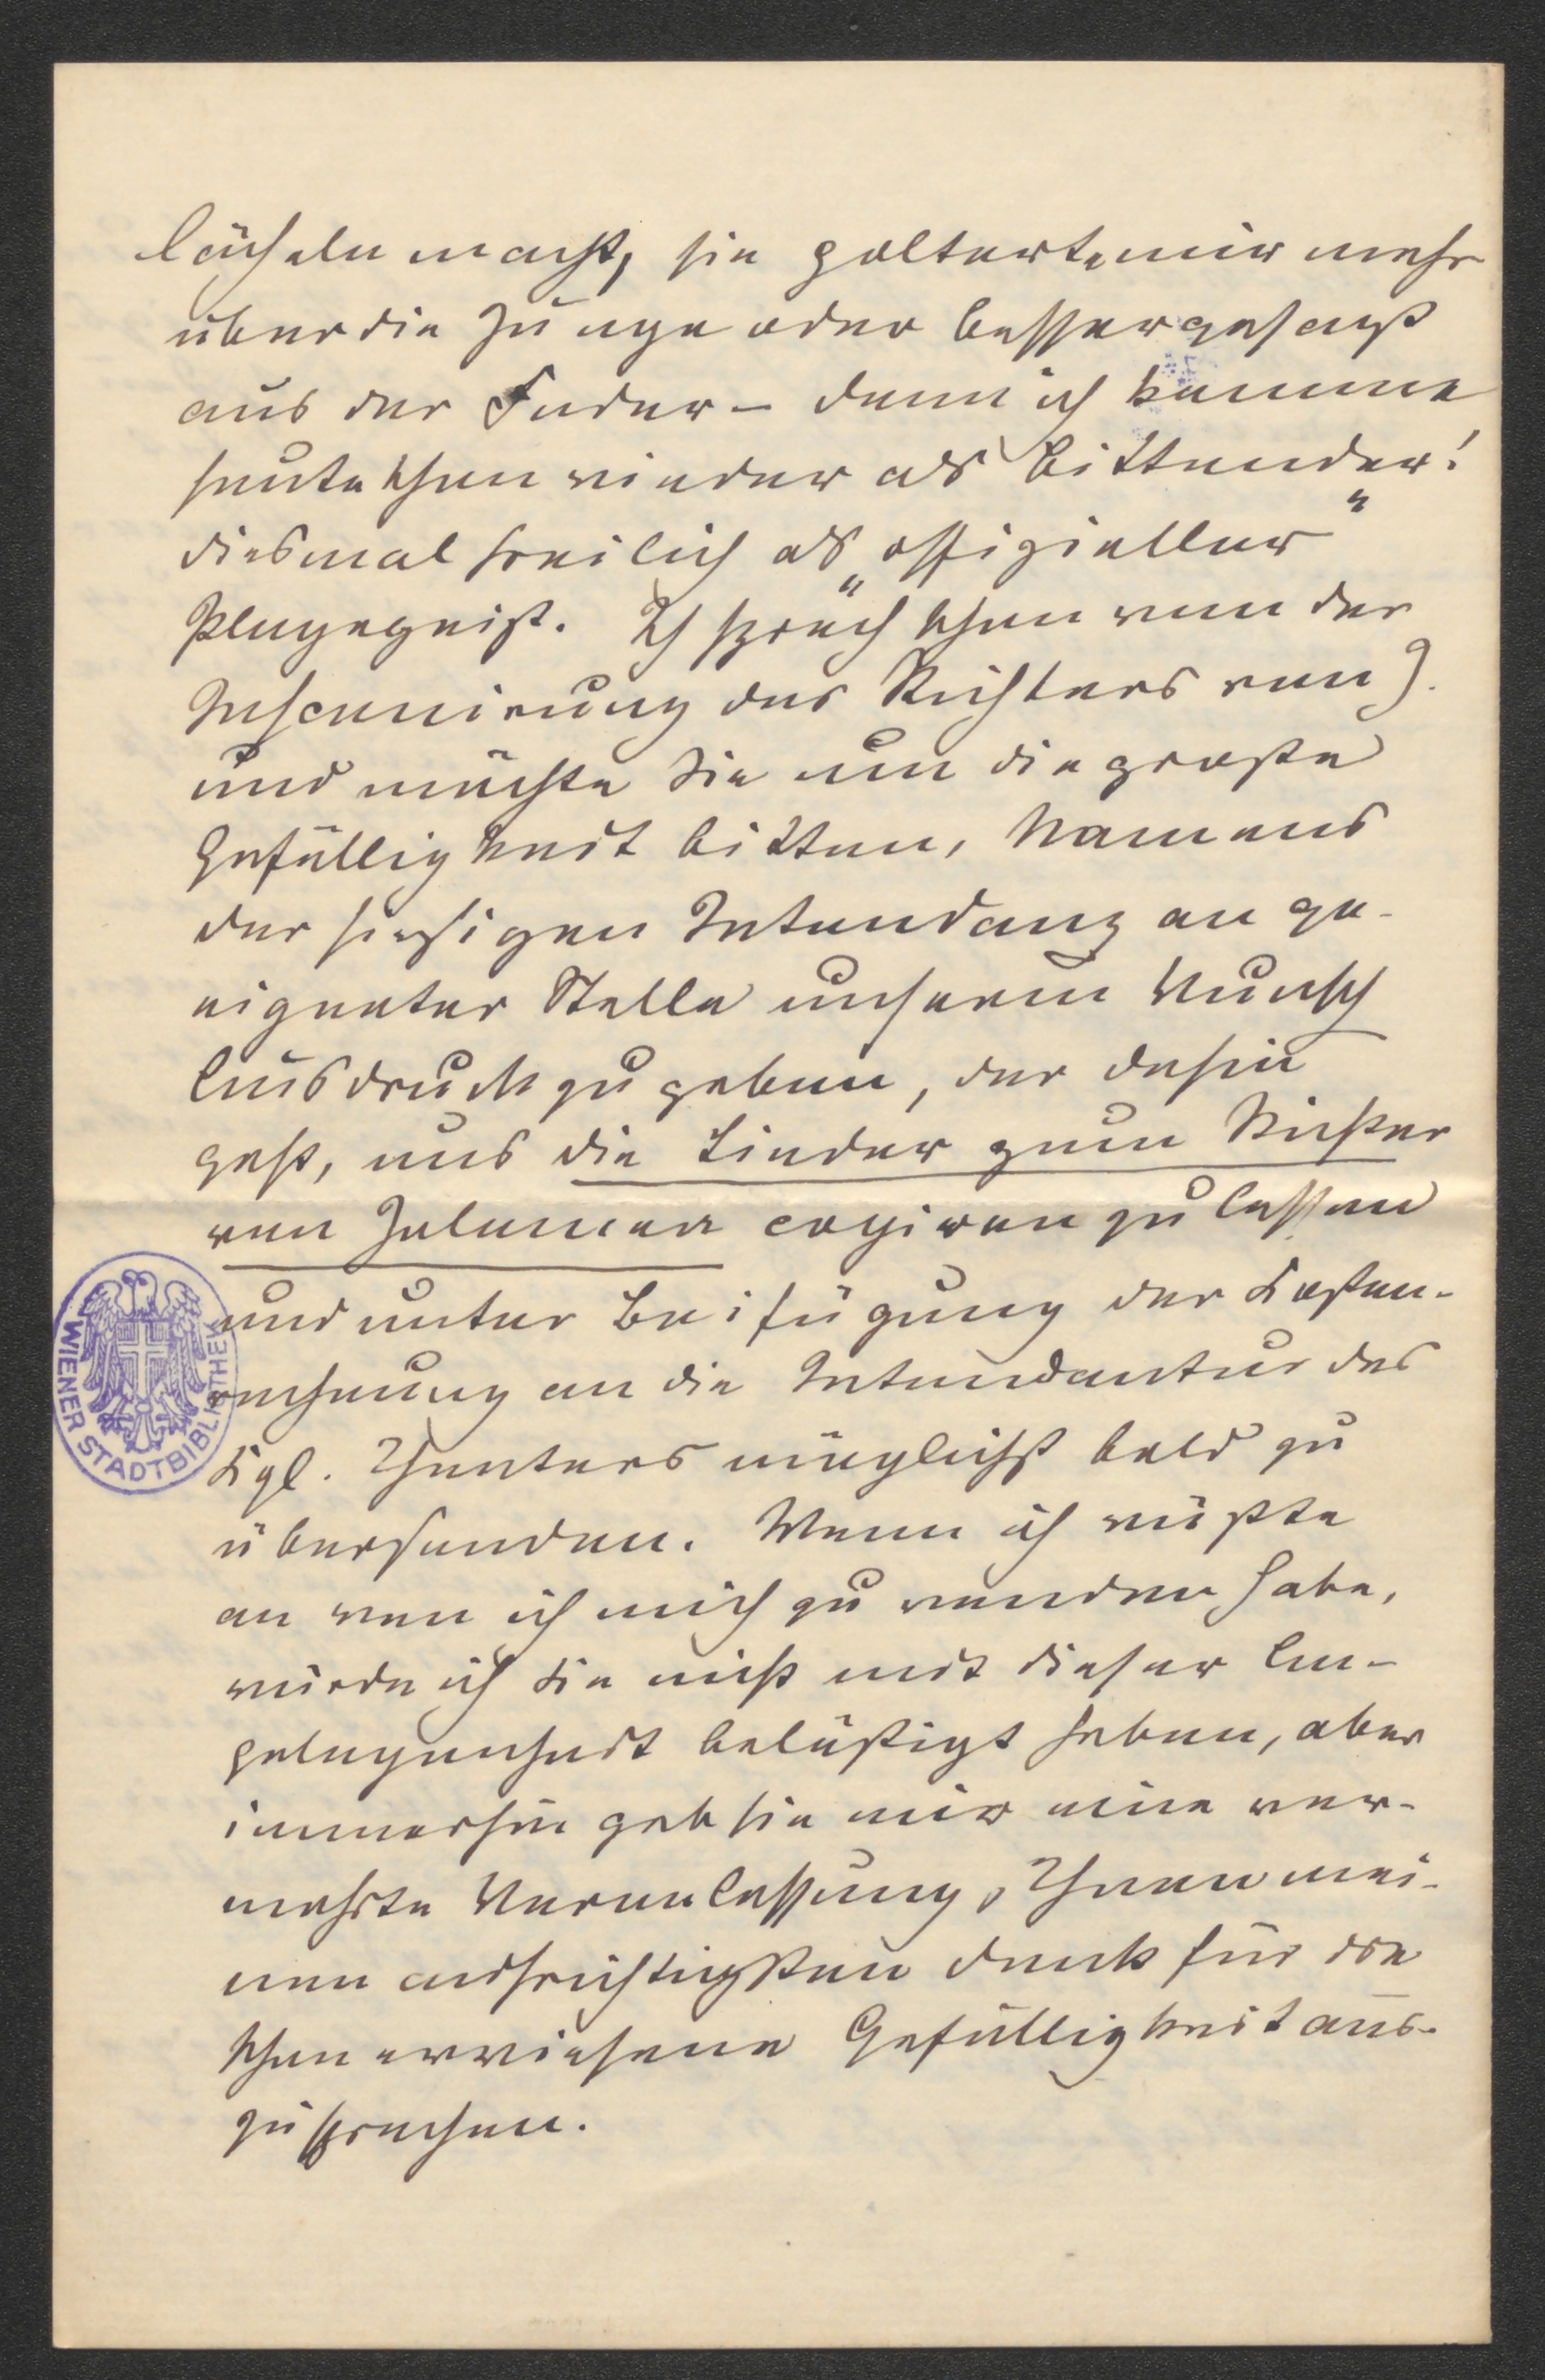 lächeln macht, sie polterte mir mehr
über die Zunge oder besser gesagt
aus der Feder – denn ich komme
heute schon wieder als Bittender!
diesmal freilich als „offizieller“
Plagegeist. Ich sprach schon von der
Inscenirung des Richters von Z.
und möchte Sie um die große
Gefälligkeit bitten, Namens
der hiesigen Intendanz an ge-
eigneter Stelle unserem Wunsch
Ausdruck zu geben, der dahin
geht, uns die Lieder zum Richter
von Zalamea copiren zu lassen
und unter Beifügung der Kosten-
rechnung an die Intendantur des
Kgl. Theaters möglichst bald zu
übersenden. Wenn ich wüßte
an wen ich mich zu wenden habe,
würde ich Sie nicht mit dieser An-
gelegenheit belästigt haben, aber
immerhin gab sie mir eine ver-
mehrte Veranlassung, Ihnen mei-
nen aufrichtigsten Dank für die
schon erwiesene Gefälligkeit aus-
zusprechen.
WIENER STADTBIBLIOTHEK